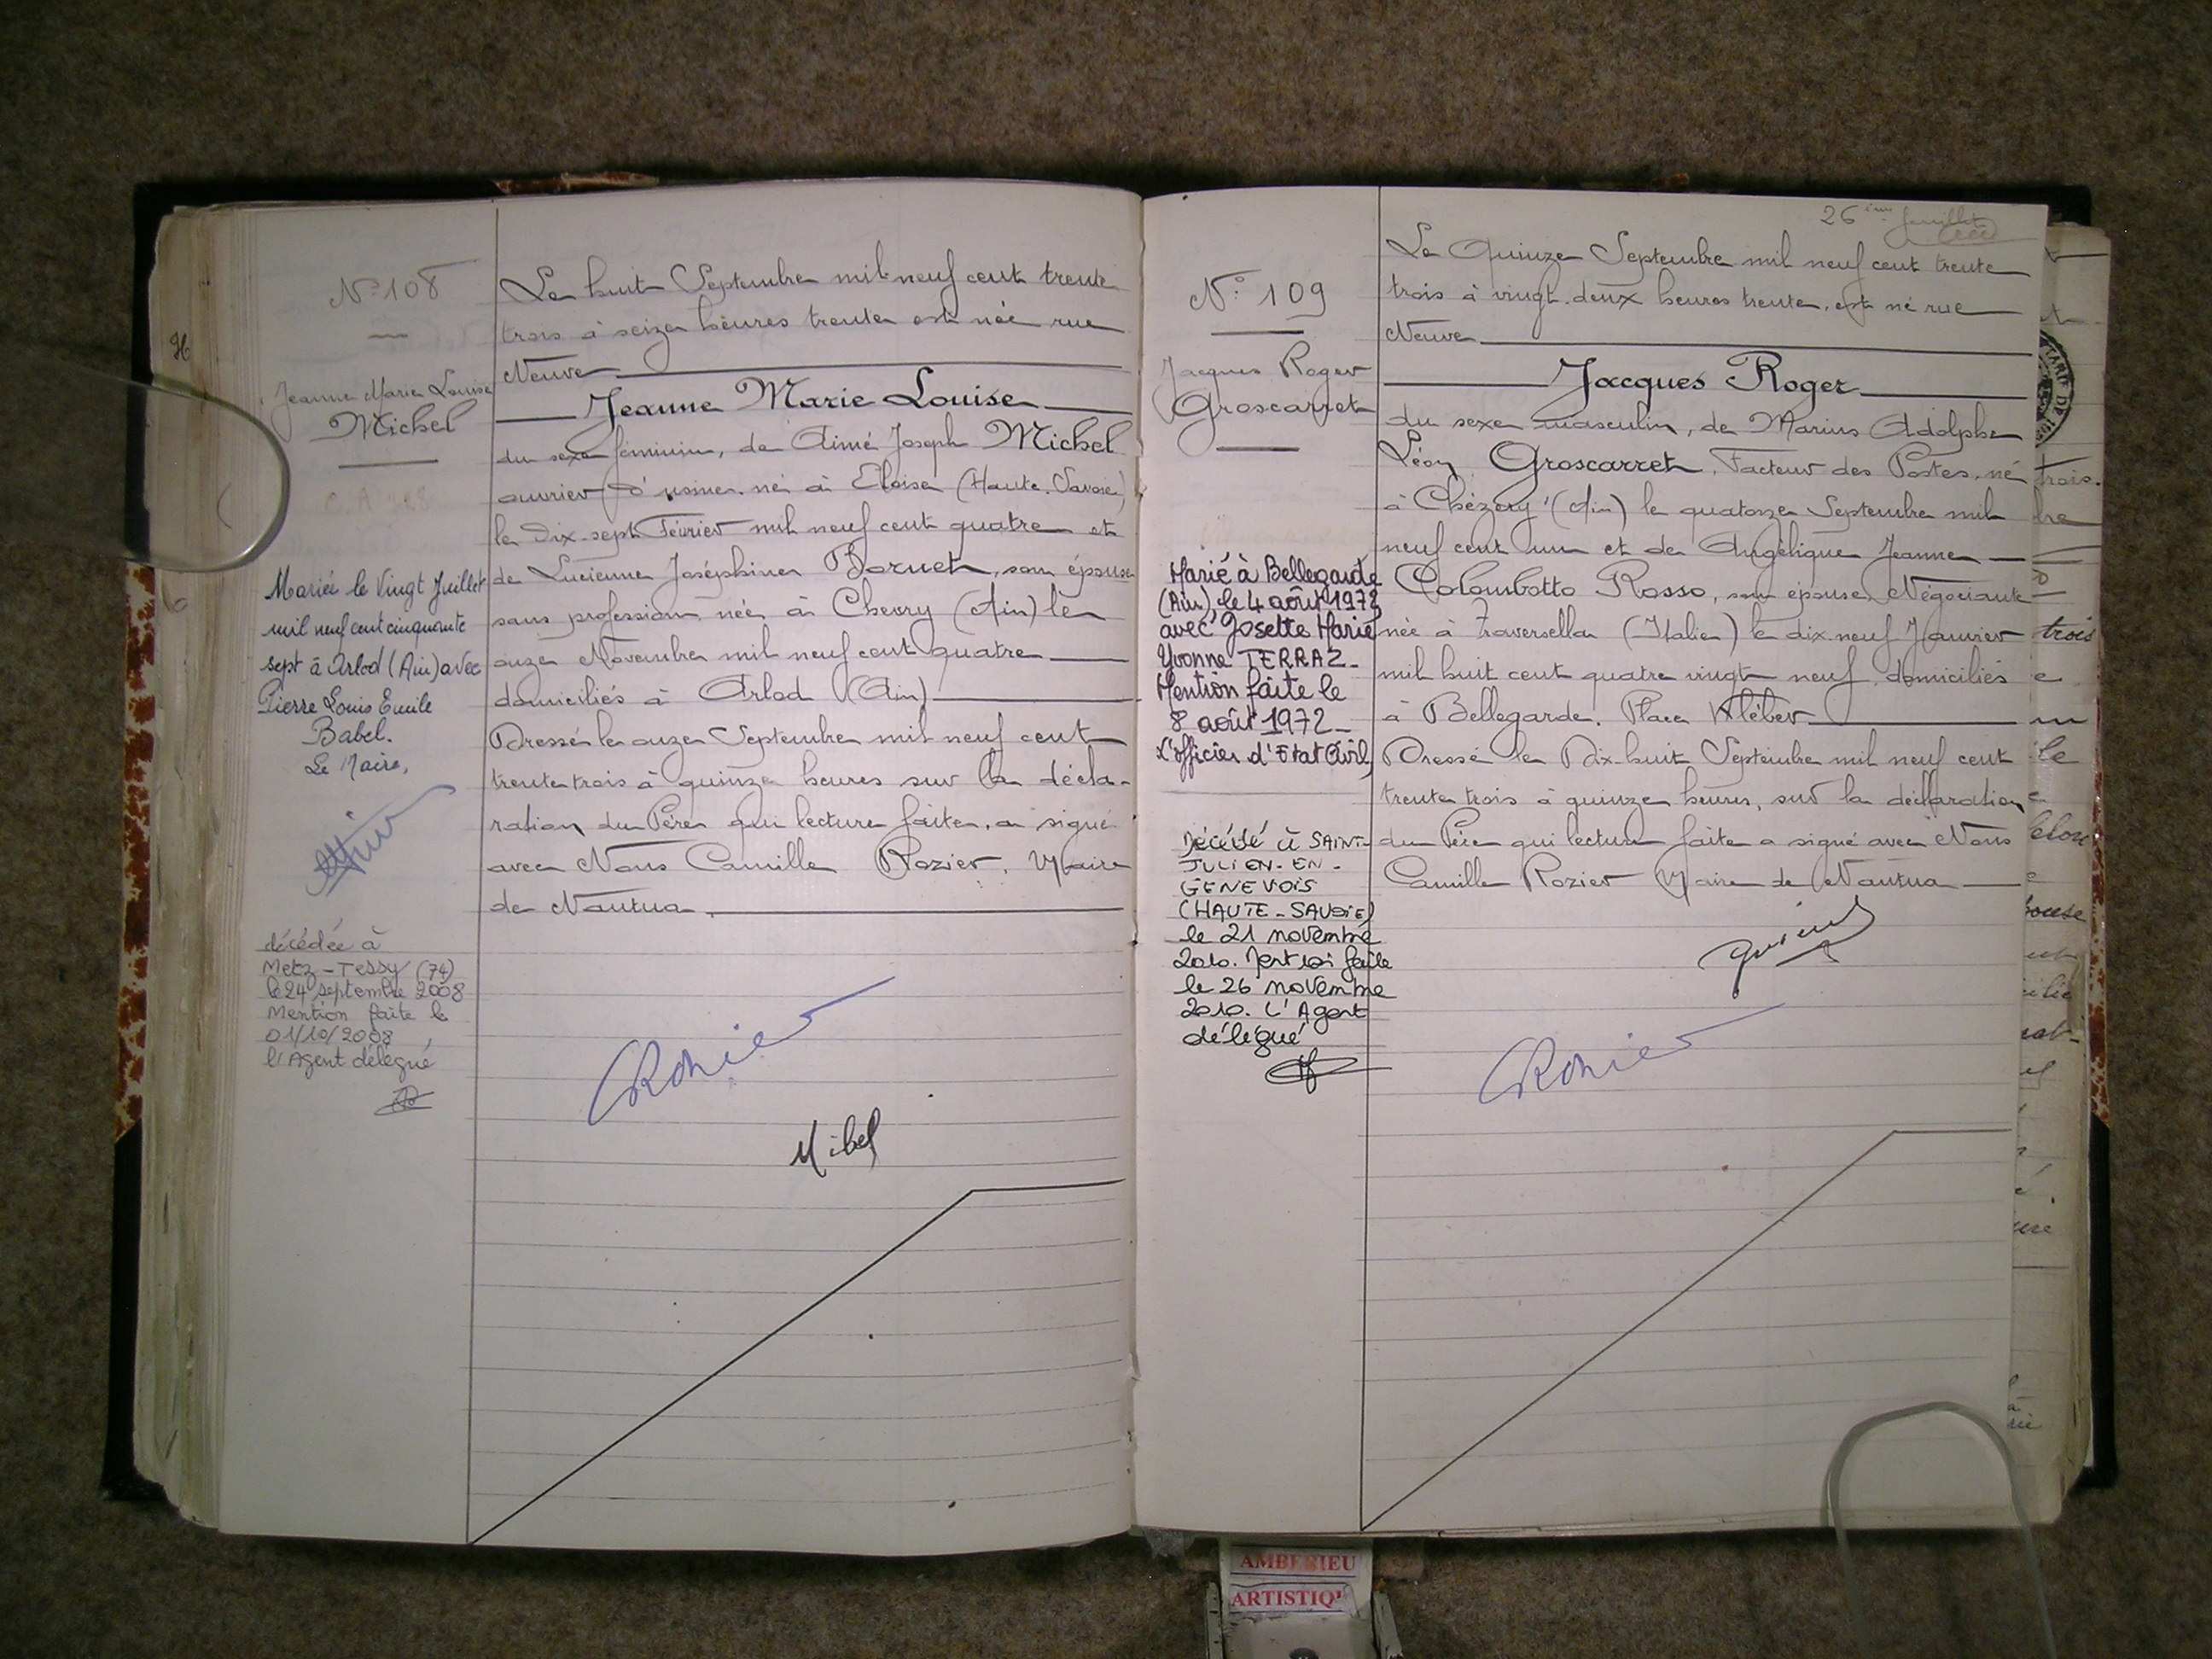 N° 108
Jeanne Marie Louise
Michel
Mariée le Vingt Juillet
mil neuf cent cinquante
sept à Arlod (Ain) avec
Pierre Louis Emile
Babel.
Le Maire,
décédée à
Metz-Tessy (74)
le 24 septembre 2008
Mention faite le
01/10/2008
l'Agent délégué
Le huit Septembre mil neuf cent trente
trois à seize heures trente est née rue
Neuve
Jeanne Marie Louise
du sexe féminin, de Aimé Joseph Michel
ouvrier d'usine né à Eloise (Haute-Savoie)
le dix-sept Février mil neuf cent quatre et
de Lucienne Joséphine Bornet, son épouse
sans profession née à Chevry (Ain) le
onze Novembre mil neuf cent quatre
domiciliés à Arlod (Ain)
Dressé le onze Septembre mil neuf cent
trente trois à quinze heures sur la décla-
ration du Père qui lecture faite, a signé
avec Nous Camille Rozier, Maire
de Nantua.
CRozier
Michel
26ème feuillet
N° 109
Jacques Roger
Groscarret
Marié à Bellegarde
(Ain), le 4 août 1972
avec Josette Marie
Yvonne TERRAZ-
Mention faite le
8 août 1972-
L'officier d'Etat Civil,
Décédé à SAINT-
JULIEN-EN-
GENEVOIS
(HAUTE-SAVOIE)
le 21 novembre
2010. Mention faite
le 26 novembre
2010. L'Agent
délégué
Le Quinze Septembre mil neuf cent trente
trois à vingt-deux heures trente, est né rue
Neuve
Jacques Roger
du sexe masculin, de Marius Adolphe
Léon Groscarret, Facteur des Postes, né
à Chézery (Ain) le quatorze Septembre mil
neuf cent un et de Angélique Jeanne
Colombotto Rosso, son épouse, Négociante
née à Traversella (Italie) le dix neuf Janvier
mil huit cent quatre vingt neuf, domiciliés
à Bellegarde. Place Kléber
Dressé le Dix-huit Septembre mil neuf cent
trente trois à quinze heures, sur la déclaration
du Père qui lecture faite a signé avec Nous
Camille Rozier Maire de Nantua
CRozier
trois.
trois
AMBERIEU
ARTISTIQ